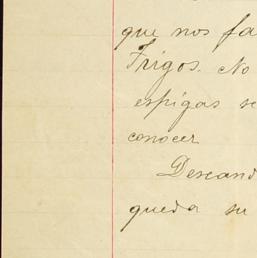 que nos fa
Trigos. No
espigas se
conocer
Deseand
queda su